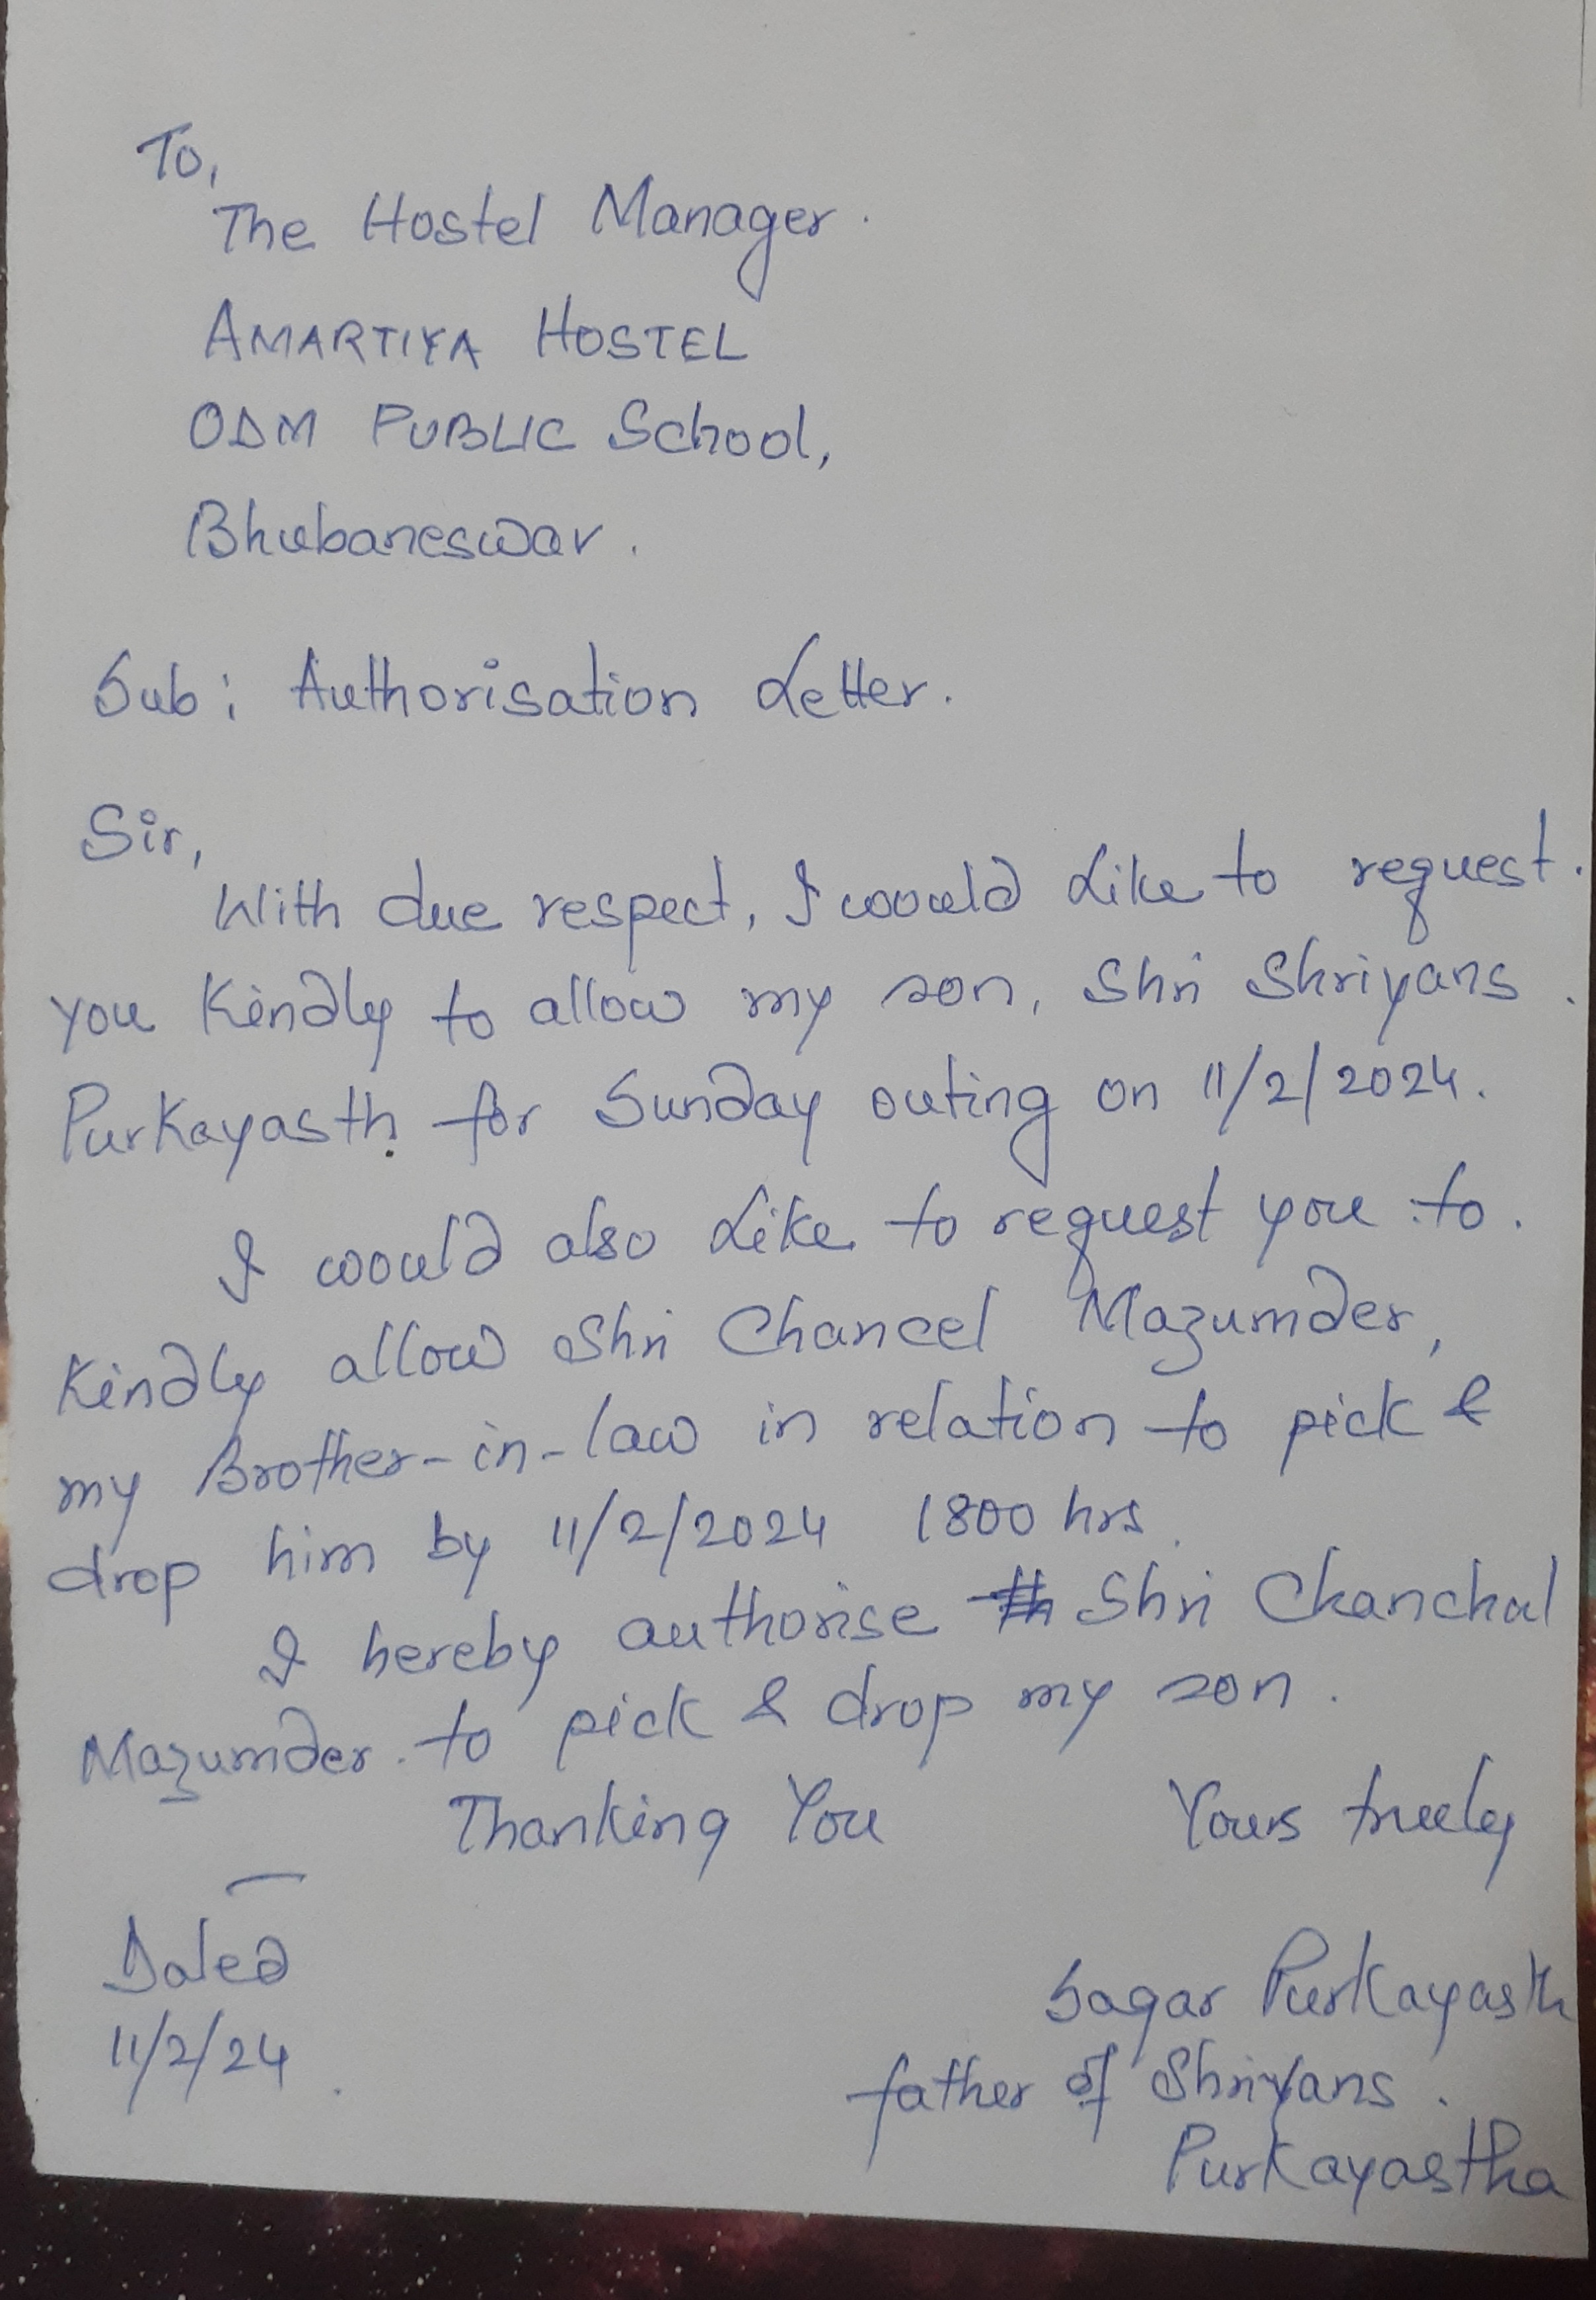 To,
The Hostel Manager.
AMARTIYA HOSTEL
ODM PUBLIC School,
Bhubaneswar.
Sub: Authorisation Letter.
Sir,
With due respect, I would like to request.
you Kindly to allow my son, Shri Shriyans.
Purkayasth. for Sunday outing on 11/2/2024.
I would also like to request you to.
Kindly allow Shri Chancel Mazumder,
my Brother-in-law in relation to pick &
drop him by 11/2/2024 1800 hrs.
I hereby authorise Shri Chanchal
Mazumder. to pick & drop my son.
Thanking You Yours truely
Dated
11/2/24.
Sagar Purkayasth
father of Shriyans.
Purkayastha